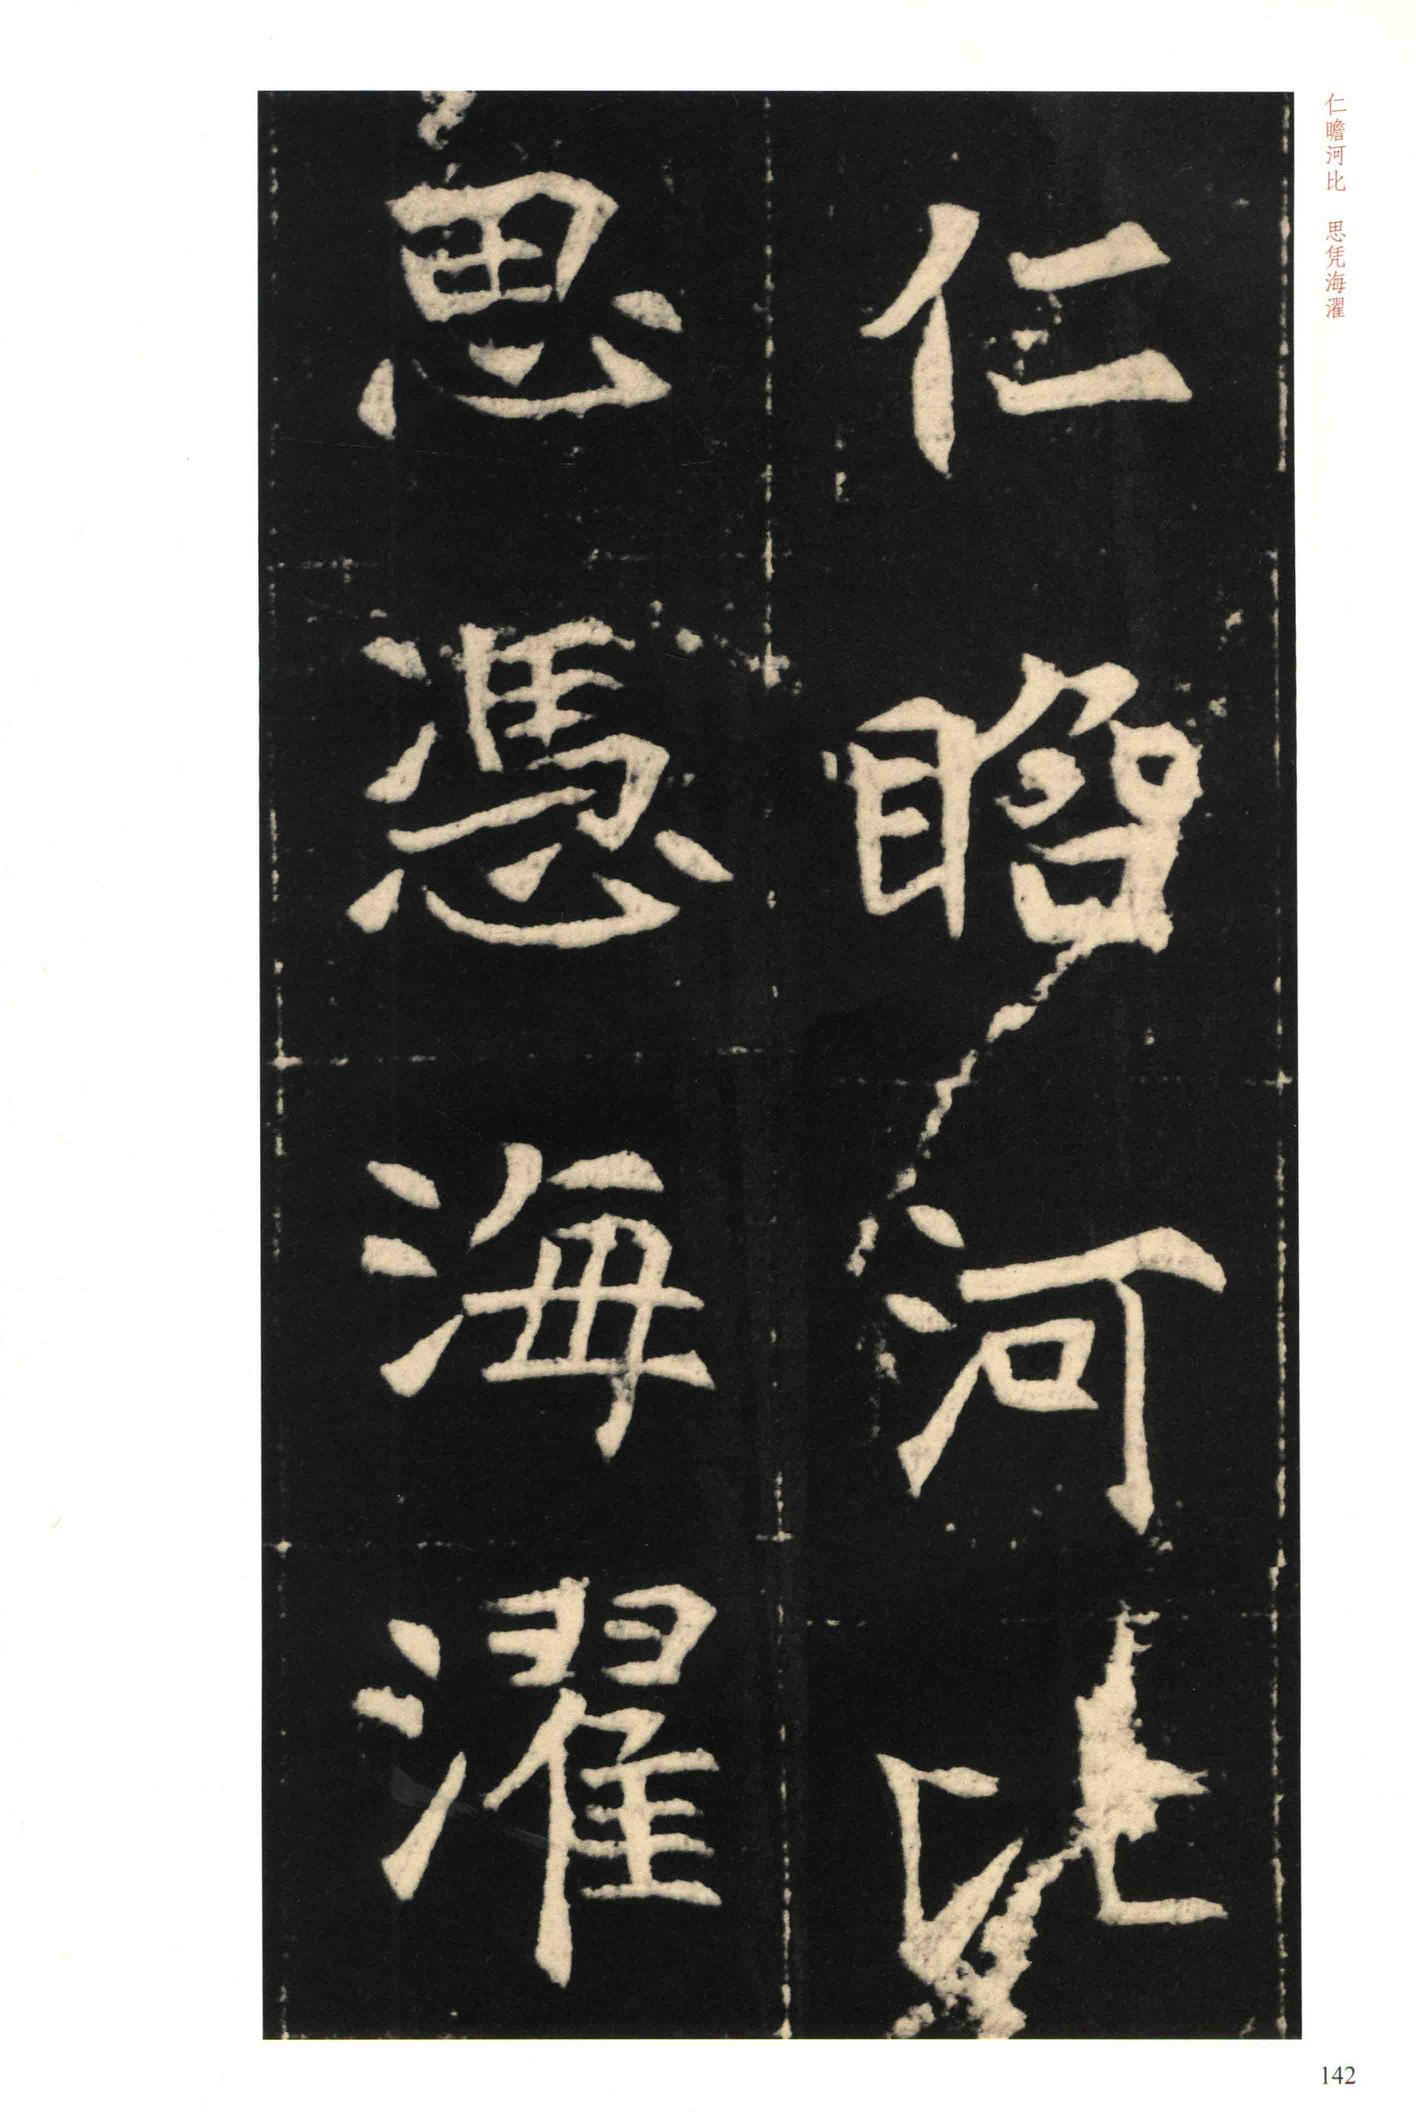 仁瞻河比 思凭海濯
仁瞻河比
思憑海濯
142